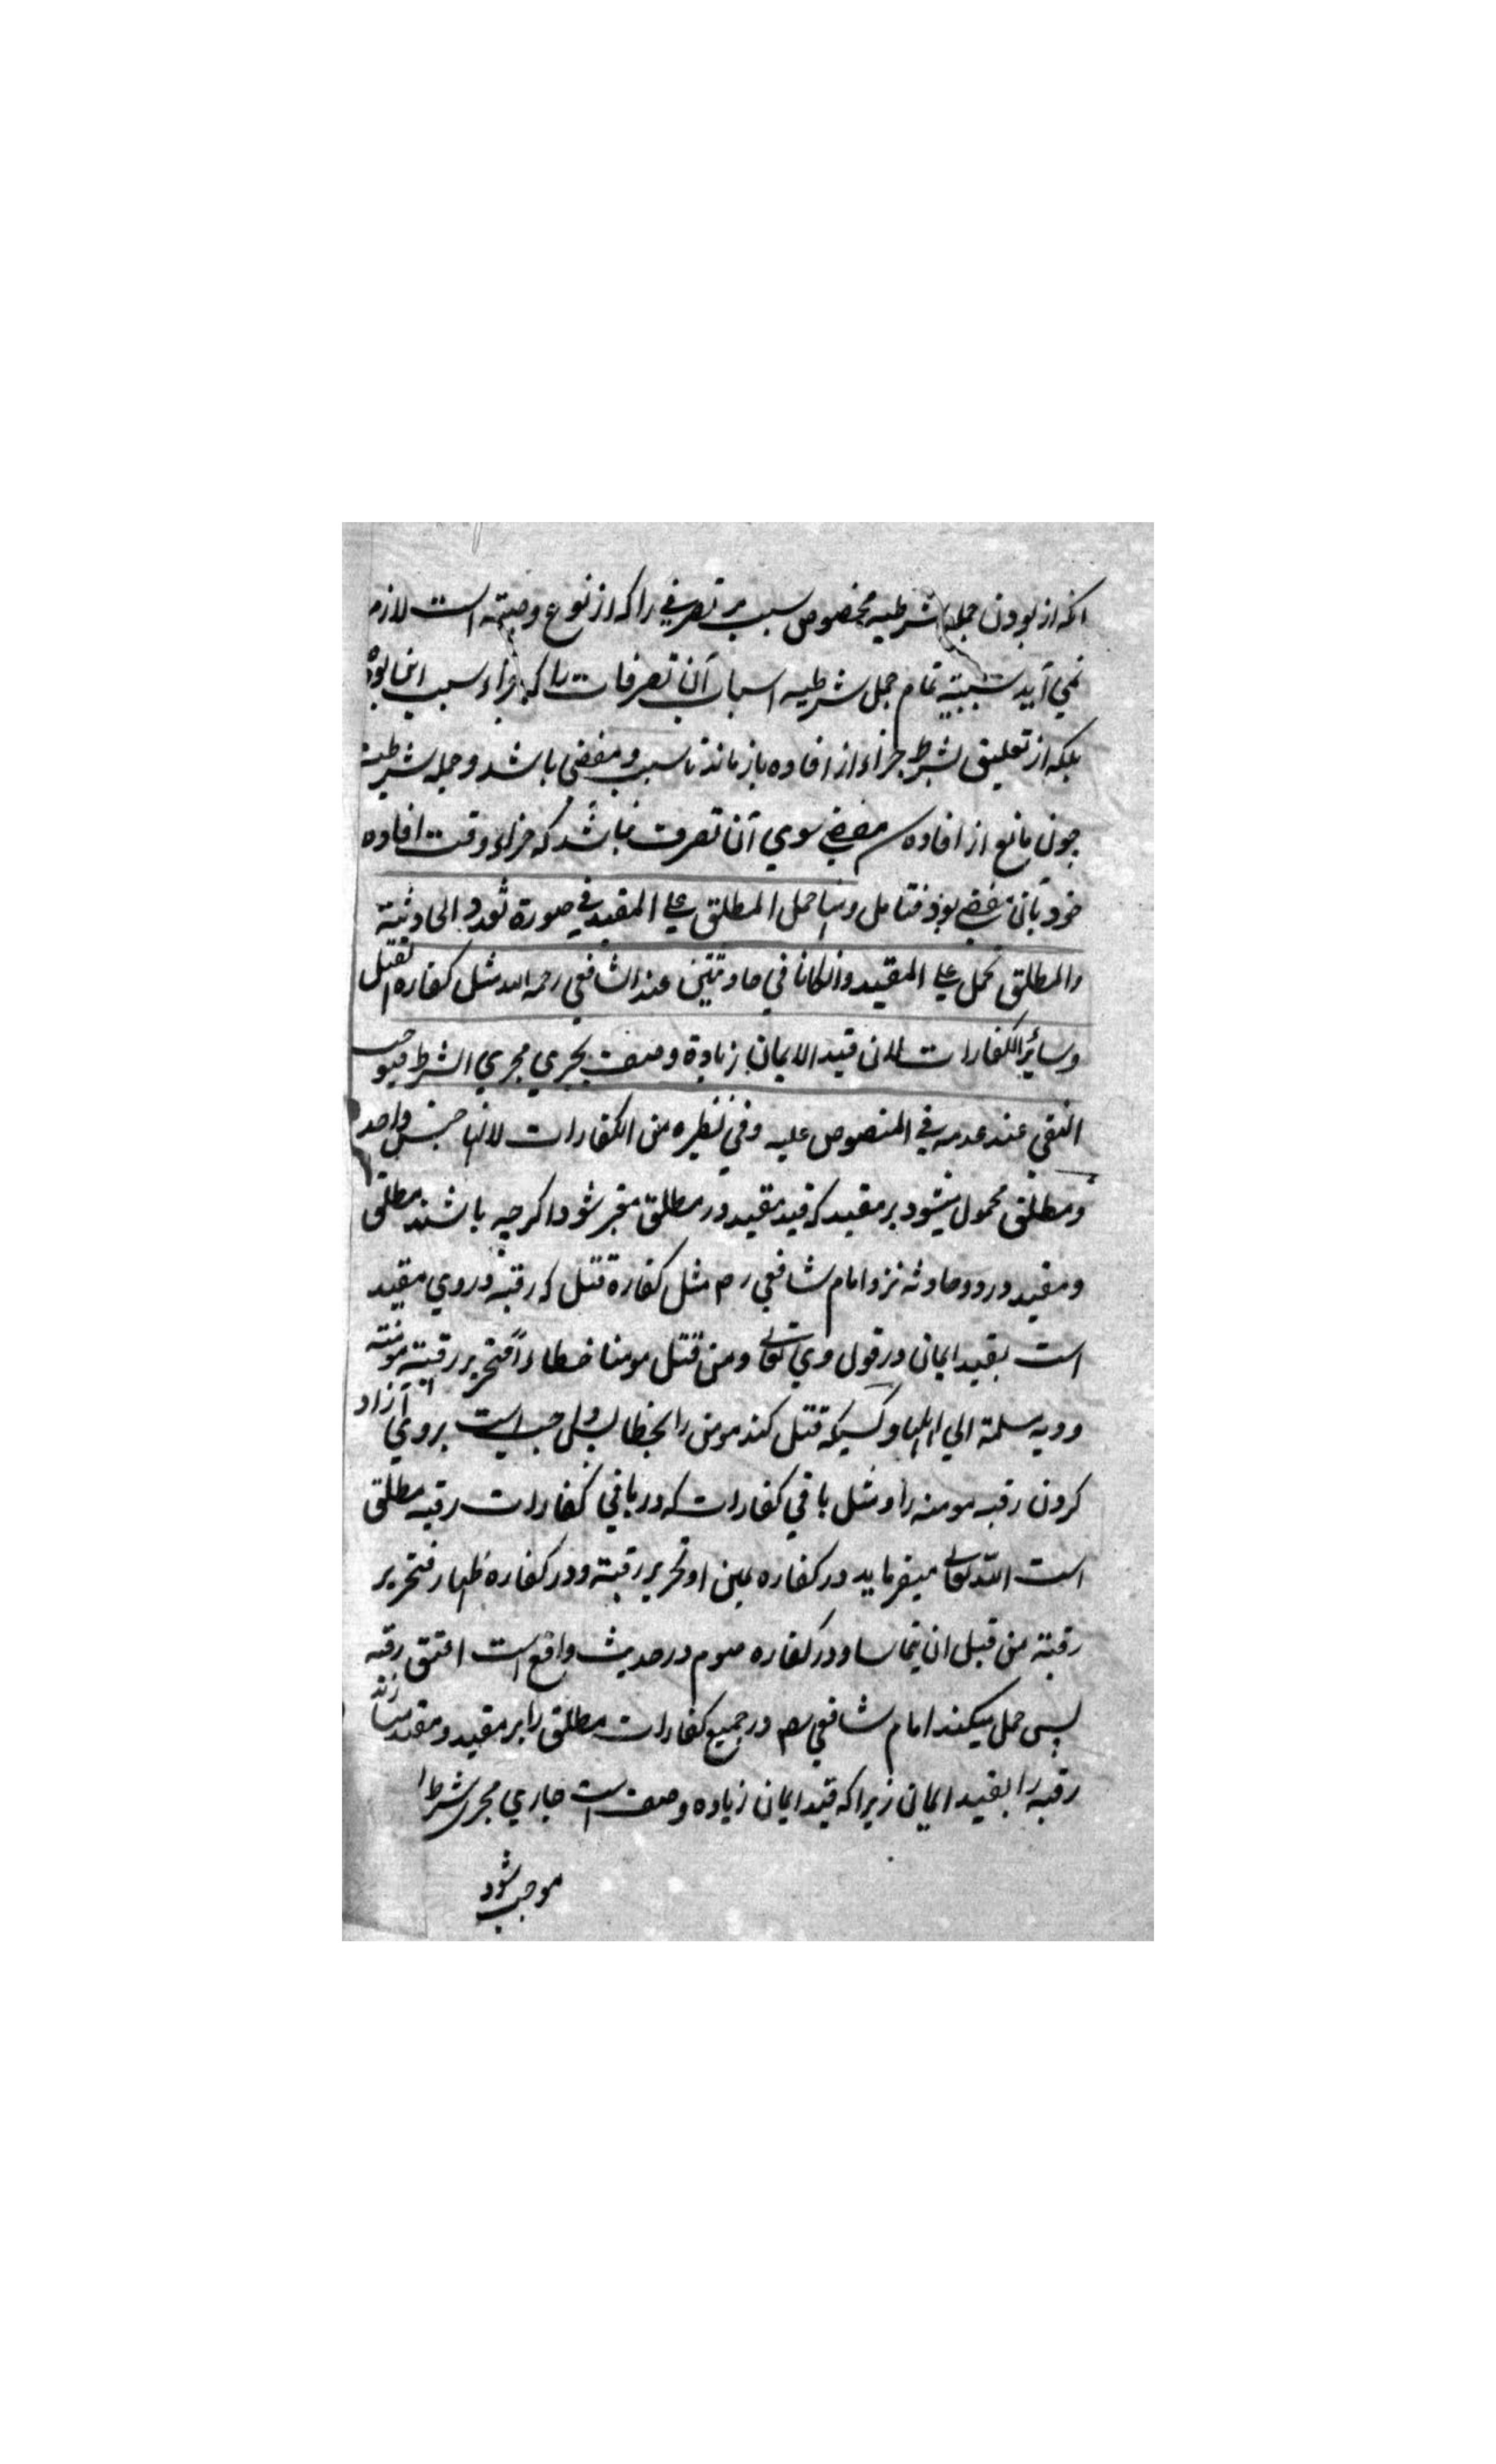 انکه از بودن جمله شرطیه مخصوص سبب مر تصرفی را که از نوع وصیته است لازم
نمی آید سببیته تمام جمل شرطیه اسباب آن تصرفات را که جزاء سبب این بود
بلکه از تعلیق بشرط جزاء از افاده باز ماند تا سبب و مفضی باشد و جمله شرطیه
چون مانع از افاده مفضی سوی آن تصرف نباشد که جزاء وقت افاده
خود بآن مفضی بود فتامل و حمل المطلق علی المقید فی صورة تعدد الحادثة
والمطلق یحمل علی المقید وان کانا فی حادثتین عند الشافعی رحمه الله مثل کفارة القتل
وسائر الکفارات لان قید الایمان زیادة وصف یجری مجری الشرط فیوجب
النفی عند عدمه فی المنصوص علیه وفی نظیره من الکفارات لانها جنس واحد
و مطلق محمول میشود بر مقید که قید مقید در مطلق معتبر شود اگرچه باشند مطلق
و مقید در دو حادثه نزد امام شافعی رح مثل کفارة قتل که رقبه در وی مقید
است بقید ایمان در قول وی تعالی ومن قتل مومنا خطاءً فتحریر رقبة مومنة
ودیه سلمة الی اهلها و کسیکه قتل کند مومن را بخطا پس واجب است بروی آزاد
کردن رقبه مومنه را و مثل باقی کفارات که در باقی کفارات رقبه مطلق
است الله تعالی میفرماید در کفاره یمین او تحریر رقبة و در کفاره ظهار فتحریر
رقبة من قبل ان یتماسا و در کفاره صوم در حدیث واقع است اعتق رقبه
پس حمل میکند امام شافعی رح در جمیع کفارات مطلق را بر مقید و مقید میسازند
رقبه را بقید ایمان زیرا که قید ایمان زیاده وصف است جاری مجری شرط
موجب شود